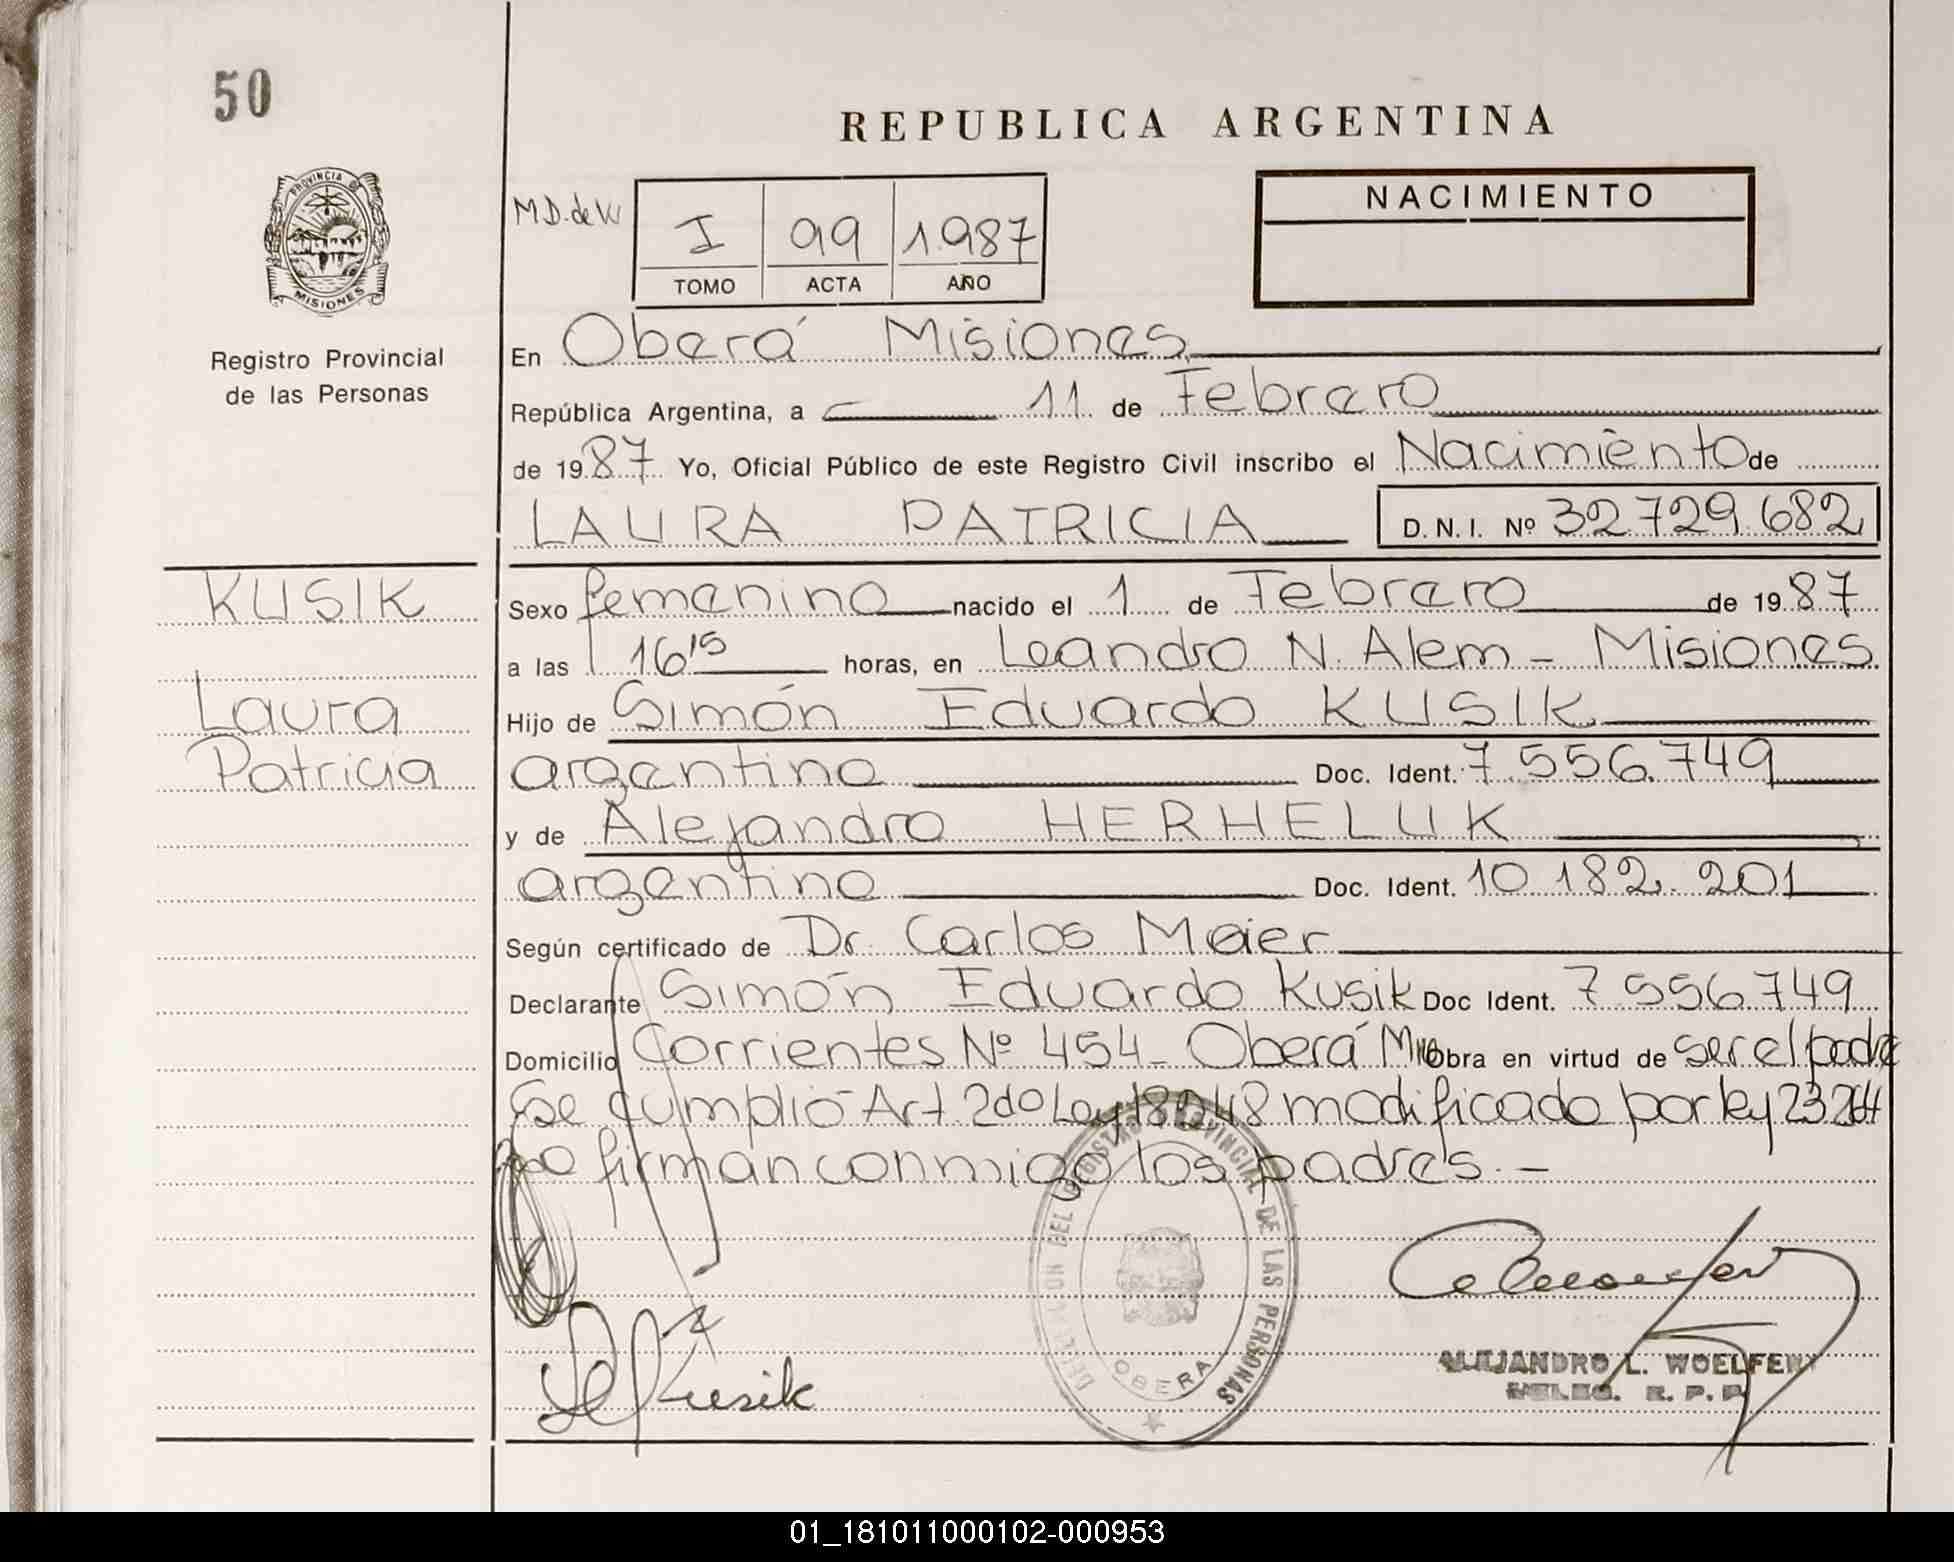 50
REPUBLICA ARGENTINA
PROVINCIA DE
MISIONES
Registro Provincial
de las Personas
M.D. de W
I 99 1.987
TOMO ACTA AÑO
NACIMIENTO
En Oberá Misiones
República Argentina, a 11 de Febrero
de 1987 Yo, Oficial Público de este Registro Civil inscribo el Nacimiento de
LAURA PATRICIA D.N.I. Nº 32.729.682
KUSIK
Laura
Patricia
Sexo femenino nacido el 1 de Febrero de 1987
a las 16 15 horas, en Leandro N. Alem - Misiones
Hijo de Simón Eduardo KUSIK
argentino Doc. Ident. 7.556.749
y de Alejandra HERHELUK
argentina Doc. Ident. 10.182.201
Según certificado de Dr. Carlos Maier
Declarante Simón Eduardo Kusik Doc Ident. 7.556.749
Domicilio Corrientes Nº 454 - Oberá Mnes Obra en virtud de ser el padre
Se cumplió Art. 2do Ley 18248 modificado por ley 23264
firman conmigo los padres. -
DELEGACION DEL REGISTRO PROVINCIAL DE LAS PERSONAS
OBERA
Kusik
ALEJANDRO L. WOELFERT
DELEG. R. P. P.
01_181011000102-000953